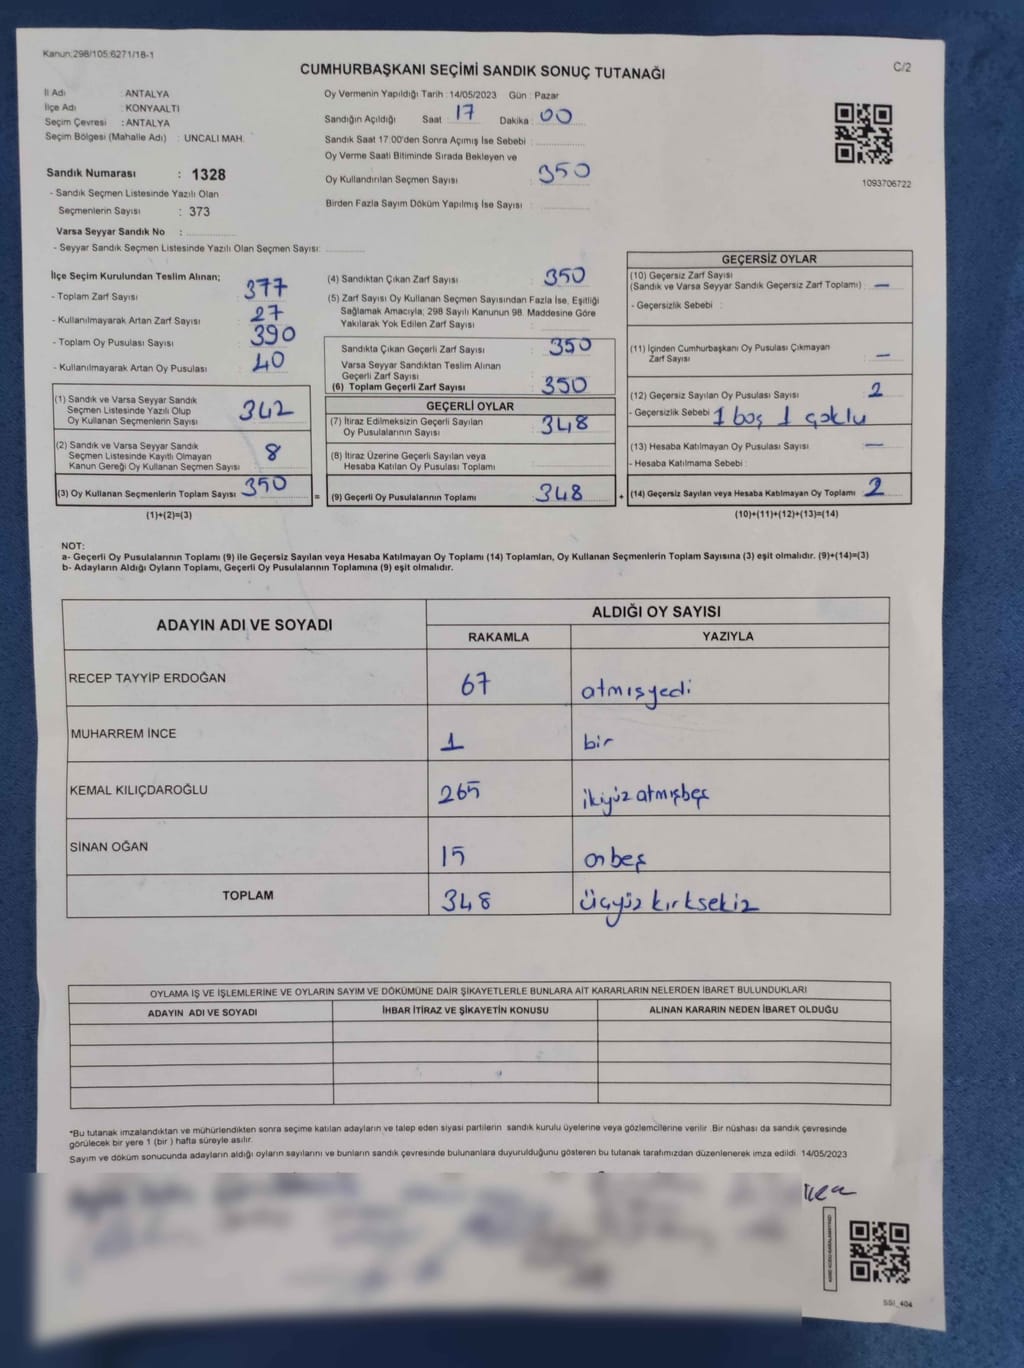 Kanun:298/105:6271/18-1
CUMHURBAŞKANI SEÇİMİ SANDIK SONUÇ TUTANAĞI
C/2
İl Adı : ANTALYA
İlçe Adı : KONYAALTI
Seçim Çevresi : ANTALYA
Seçim Bölgesi (Mahalle Adı) : UNCALI MAH.
Sandık Numarası : 1328
- Sandık Seçmen Listesinde Yazılı Olan
Seçmenlerin Sayısı : 373
Varsa Seyyar Sandık No :
- Seyyar Sandık Seçmen Listesinde Yazılı Olan Seçmen Sayısı:
Oy Vermenin Yapıldığı Tarih : 14/05/2023 Gün : Pazar
Sandığın Açıldığı Saat : 17 Dakika : 00
Sandık Saat 17:00'den Sonra Açımış İse Sebebi :
Oy Verme Saati Bitiminde Sırada Bekleyen ve
Oy Kullandırılan Seçmen Sayısı : 350
Birden Fazla Sayım Döküm Yapılmış İse Sayısı :
1093706722
İlçe Seçim Kurulundan Teslim Alınan;
- Toplam Zarf Sayısı : 377
- Kullanılmayarak Artan Zarf Sayısı : 27
- Toplam Oy Pusulası Sayısı : 390
- Kullanılmayarak Artan Oy Pusulası : 40
(1) Sandık ve Varsa Seyyar Sandık
Seçmen Listesinde Yazılı Olup
Oy Kullanan Seçmenlerin Sayısı : 342
(2) Sandık ve Varsa Seyyar Sandık
Seçmen Listesinde Kayıtlı Olmayan
Kanun Gereği Oy Kullanan Seçmen Sayısı : 8
(3) Oy Kullanan Seçmenlerin Toplam Sayısı : 350
(1)+(2)=(3)
(4) Sandıktan Çıkan Zarf Sayısı : 350
(5) Zarf Sayısı Oy Kullanan Seçmen Sayısından Fazla İse, Eşitliği
Sağlamak Amacıyla; 298 Sayılı Kanunun 98. Maddesine Göre
Yakılarak Yok Edilen Zarf Sayısı :
Sandıkta Çıkan Geçerli Zarf Sayısı : 350
Varsa Seyyar Sandıktan Teslim Alınan
Geçerli Zarf Sayısı :
(6) Toplam Geçerli Zarf Sayısı : 350
GEÇERLİ OYLAR
(7) İtiraz Edilmeksizin Geçerli Sayılan
Oy Pusulalarının Sayısı : 348
(8) İtiraz Üzerine Geçerli Sayılan veya
Hesaba Katılan Oy Pusulası Toplamı :
= (9) Geçerli Oy Pusulalarının Toplamı : 348
GEÇERSİZ OYLAR
(10) Geçersiz Zarf Sayısı
(Sandık ve Varsa Seyyar Sandık Geçersiz Zarf Toplamı) : —
- Geçersizlik Sebebi :
(11) İçinden Cumhurbaşkanı Oy Pusulası Çıkmayan
Zarf Sayısı : —
(12) Geçersiz Sayılan Oy Pusulası Sayısı : 2
- Geçersizlik Sebebi : 1 boş 1 çoklu
(13) Hesaba Katılmayan Oy Pusulası Sayısı : —
- Hesaba Katılmama Sebebi :
+ (14) Geçersiz Sayılan veya Hesaba Katılmayan Oy Toplamı : 2
(10)+(11)+(12)+(13)=(14)
NOT:
a- Geçerli Oy Pusulalarının Toplamı (9) ile Geçersiz Sayılan veya Hesaba Katılmayan Oy Toplamı (14) Toplamları, Oy Kullanan Seçmenlerin Toplam Sayısına (3) eşit olmalıdır. (9)+(14)=(3)
b- Adayların Aldığı Oyların Toplamı, Geçerli Oy Pusulalarının Toplamına (9) eşit olmalıdır.
ADAYIN ADI VE SOYADI ALDIĞI OY SAYISI
RAKAMLA YAZIYLA
RECEP TAYYİP ERDOĞAN 67 atmışyedi
MUHARREM İNCE 1 bir
KEMAL KILIÇDAROĞLU 265 ikiyüz atmışbeş
SİNAN OĞAN 15 onbeş
TOPLAM 348 üçyüz kırksekiz
OYLAMA İŞ VE İŞLEMLERİNE VE OYLARIN SAYIM VE DÖKÜMÜNE DAİR ŞİKAYETLERLE BUNLARA AİT KARARLARIN NELERDEN İBARET BULUNDUKLARI
ADAYIN ADI VE SOYADI İHBAR İTİRAZ VE ŞİKAYETİN KONUSU ALINAN KARARIN NEDEN İBARET OLDUĞU
*Bu tutanak imzalandıktan ve mühürlendikten sonra seçime katılan adayların ve talep eden siyasi partilerin sandık kurulu üyelerine veya gözlemcilerine verilir .Bir nüshası da sandık çevresinde
görülecek bir yere 1 (bir ) hafta süreyle asılır.
Sayım ve döküm sonucunda adayların aldığı oyların sayılarını ve bunların sandık çevresinde bulunanlara duyurulduğunu gösteren bu tutanak tarafımızdan düzenlenerek imza edildi. 14/05/2023
SSI_404